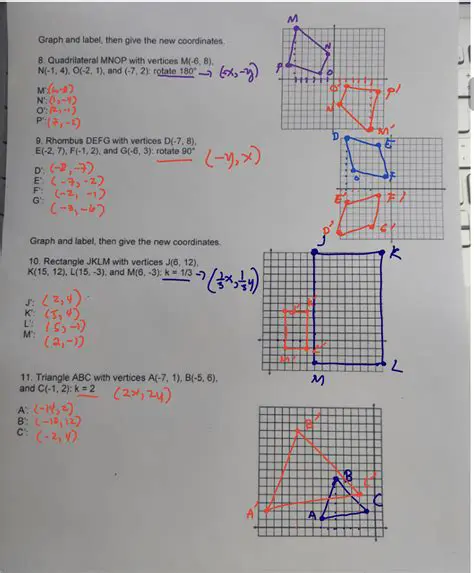 Graph and label, then give the new coordinates.
8. Quadrilateral MNOP with vertices M(-6, 8),
N(-1, 4), O(-2, 1), and (-7, 2): rotate 180° → (-x, -y)
M':
N': (1, -4)
O': (2, -1)
P': (7, -2)
9. Rhombus DEFG with vertices D(-7, 8),
E(-2, 7), F(-1, 2), and G(-6, 3): rotate 90° (-y, x)
D': (-8, -7)
E': (-7, -2)
F': (-2, -1)
G': (-3, -6)
Graph and label, then give the new coordinates.
10. Rectangle JKLM with vertices J(6, 12),
K(15, 12), L(15, -3), and M(6, -3): k = 1/3 → (1/3x, 1/3y)
J': (2, 4)
K': (5, 4)
L': (5, -1)
M': (2, -1)
11. Triangle ABC with vertices A(-7, 1), B(-5, 6),
and C(-1, 2): k = 2 (2x, 2y)
A': (-14, 2)
B': (-10, 12)
C': (-2, 4)
M
N
P
O
O' P'
N' M'
D E
F
E' F'
D' G'
J K
M L
B'
B
A' A C